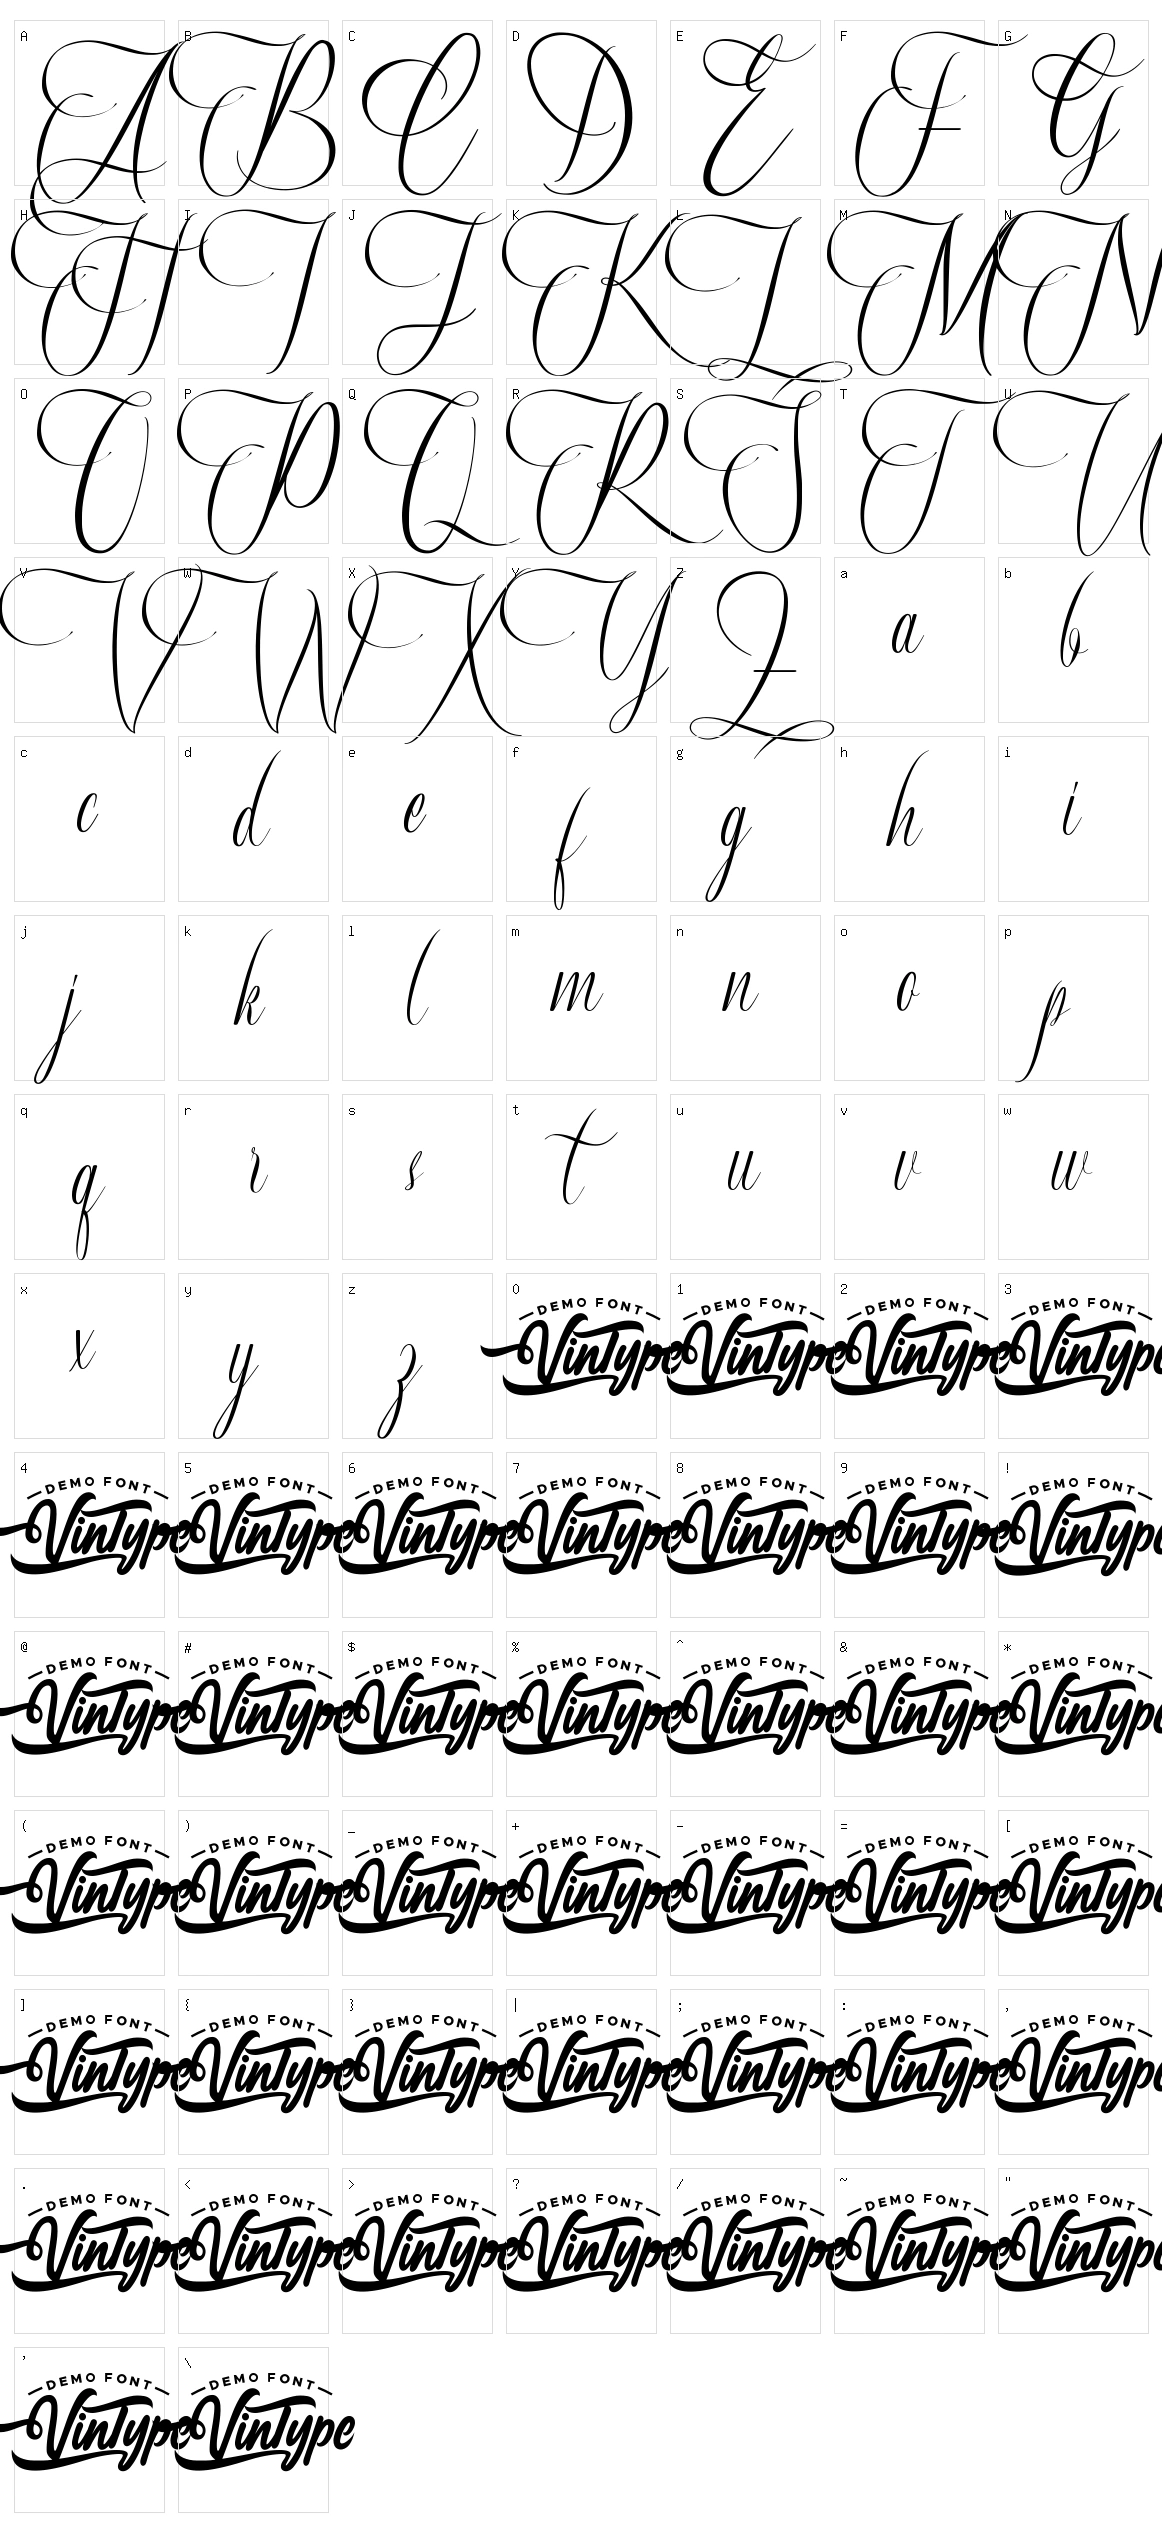 A B C D E F G
A B C D E F G
H I J K L M N
H I J K L M N
O P Q R S T U
O P Q R S T U
V W X Y Z a b
V W X Y Z a b
c d e f g h i
c d e f g h i
j k l m n o p
j k l m n o p
q r s t u v w
q r s t u v w
x y z 0 1 2 3
DEMO FONT DEMO FONT DEMO FONT DEMO FONT
x y z VinType VinType VinType VinType
4 5 6 7 8 9 !
DEMO FONT DEMO FONT DEMO FONT DEMO FONT DEMO FONT DEMO FONT DEMO FONT
VinType VinType VinType VinType VinType VinType VinType
@ # $ % ^ & *
DEMO FONT DEMO FONT DEMO FONT DEMO FONT DEMO FONT DEMO FONT DEMO FONT
VinType VinType VinType VinType VinType VinType VinType
( ) _ + - = [
DEMO FONT DEMO FONT DEMO FONT DEMO FONT DEMO FONT DEMO FONT DEMO FONT
VinType VinType VinType VinType VinType VinType VinType
] { } | ; : ,
DEMO FONT DEMO FONT DEMO FONT DEMO FONT DEMO FONT DEMO FONT DEMO FONT
VinType VinType VinType VinType VinType VinType VinType
. < > ? / ~ "
DEMO FONT DEMO FONT DEMO FONT DEMO FONT DEMO FONT DEMO FONT DEMO FONT
VinType VinType VinType VinType VinType VinType VinType
' \
DEMO FONT DEMO FONT
VinType VinType